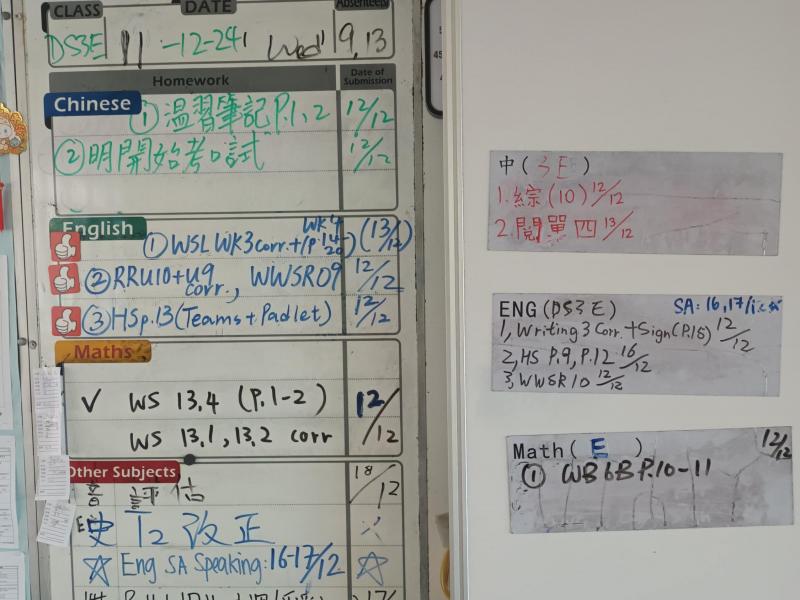 CLASS DATE Absentees
DS3E 11-12-24 Wed 9,13
Homework Date of Submission
Chinese
① 温習筆記 P.1,2 12/12
② 明開始考口試 12/12
English
① WSL WK3 corr. + WK4 (P.14-20) (13/12)
② RRU10+U9 corr., WWSR09 12/12
③ HSp.13 (Teams + Padlet) 12/12
Maths
✓ WS 13.4 (P.1-2) 12/12
WS 13.1, 13.2 corr
Other Subjects
音 評估 18/12
史 T2 改正
☆ Eng SA Speaking: 16-17/12 ☆
中(3E)
1. 綜(10) 12/12
2. 閱單四 13/12
ENG (DS3E) SA: 16,17/12
1, Writing 3 Corr. + Sign (P.15) 12/12
2, HS P.9, P.12 16/12
3, WWSR 10 12/12
Math (E) 12/12
① WB 6B P.10-11